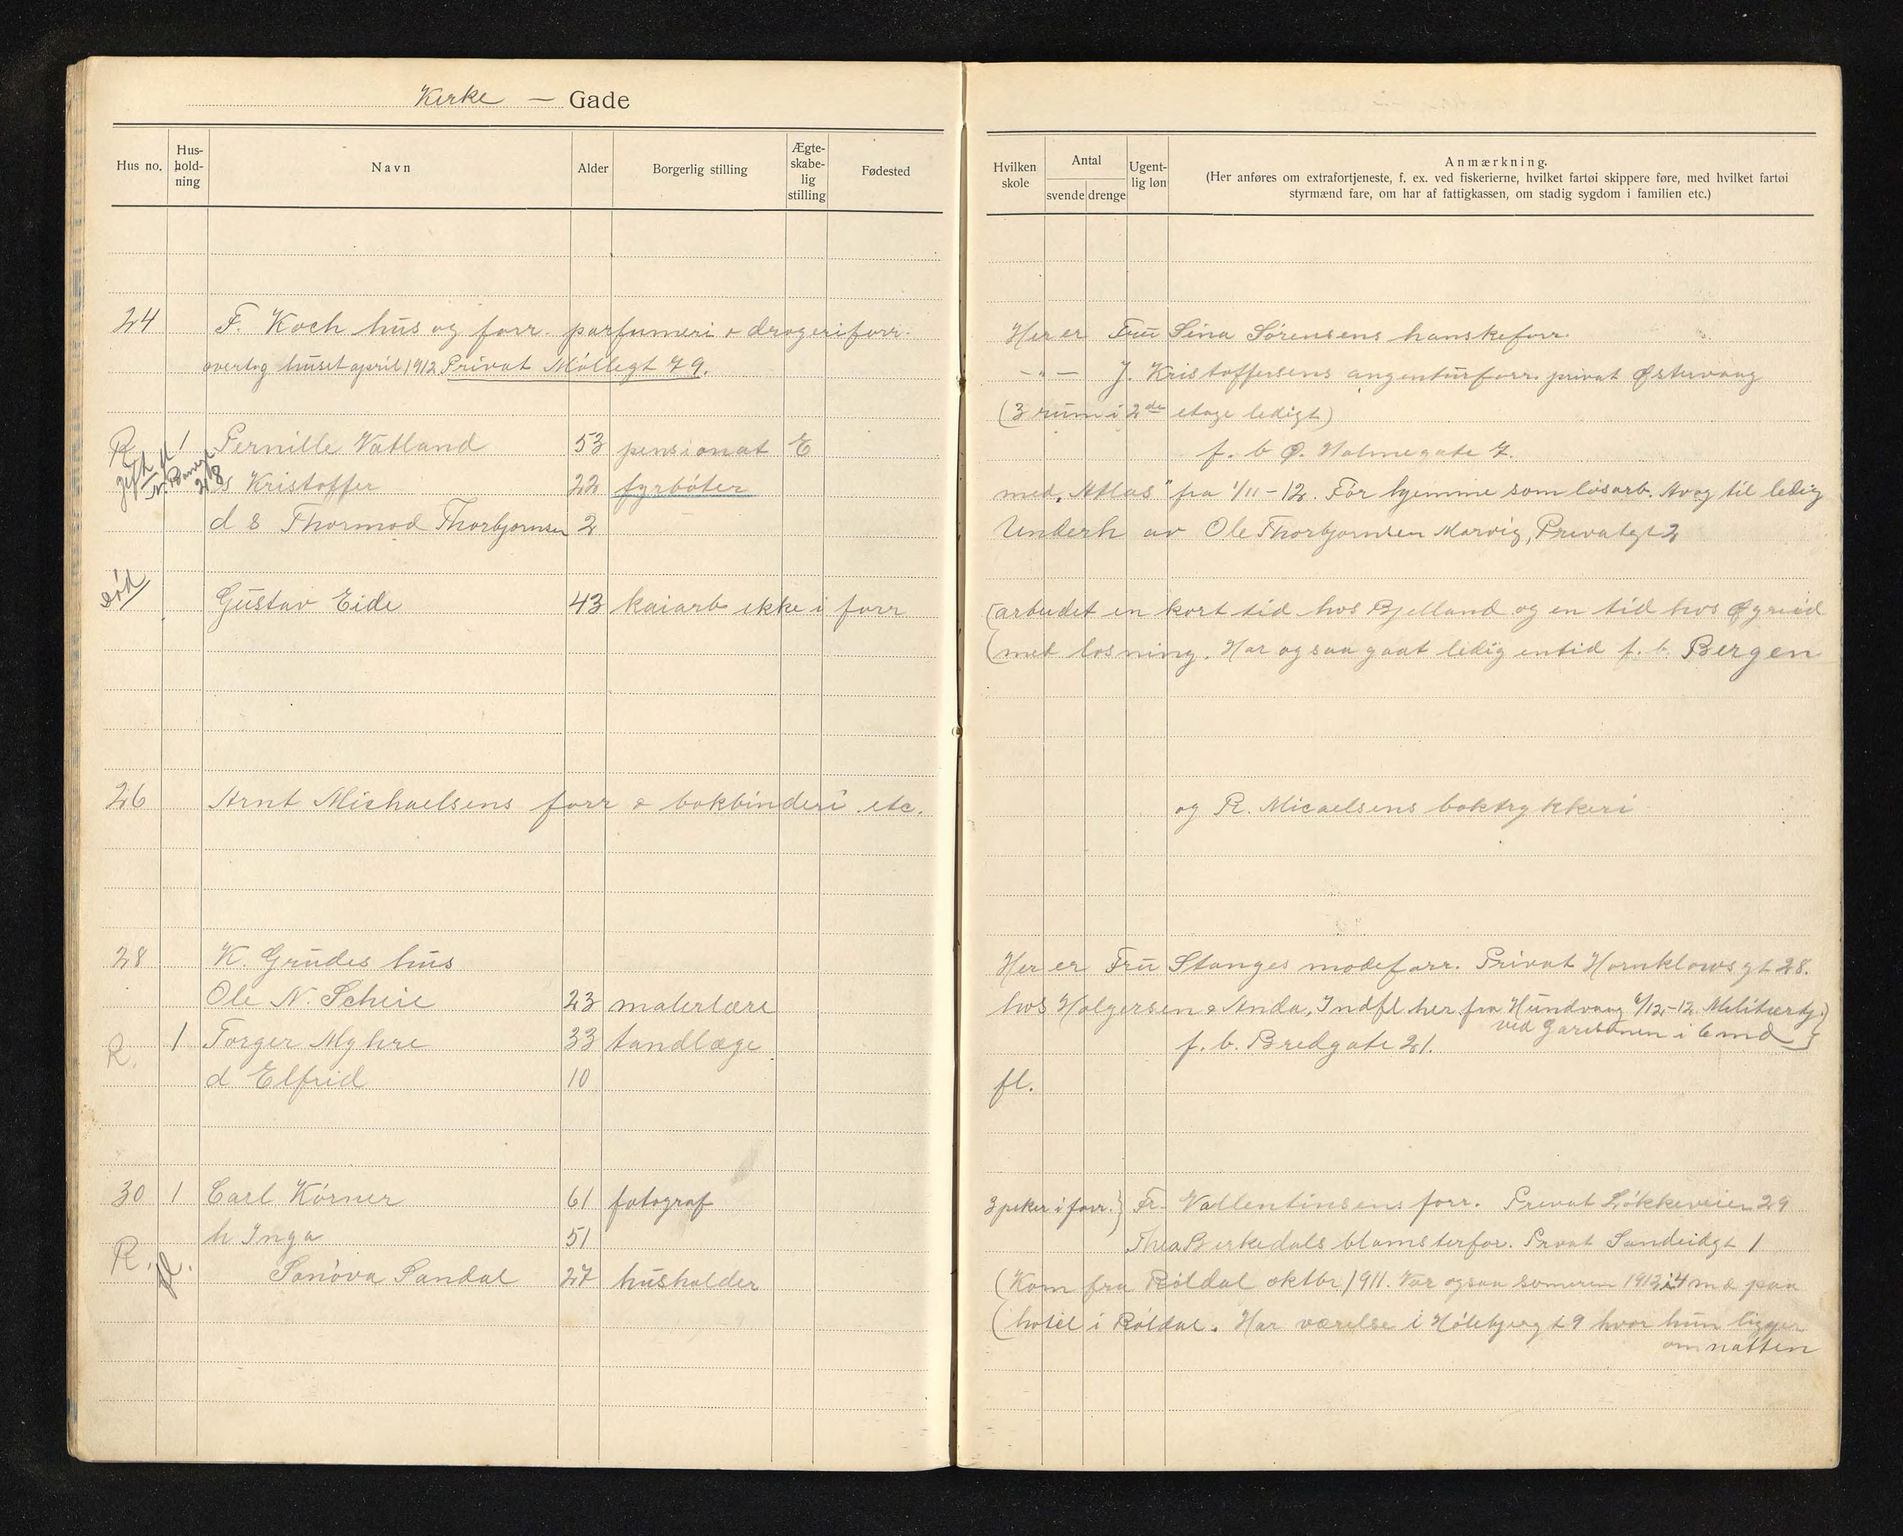 Kirke — Gade
Hus no.
Hus-
hold-
ning
Navn
Alder
Borgerlig stilling
Ægte-
skabe-
lig
stilling
Fødested
24 F. Koch hus og forr. parfumeri & drogeriforr.
overtog huset april 1912 Privat Møllegt 79.
R 1 Pernille Vatland 53 pensionat E
s Kristoffer 22 fyrbøter
d s Thormod Thorbjørnsen 2
død Gustav Eide 43 kaiarb ikke i forr
26 Arnt Michaelsens forr & bokbinderi etc.
28 K. Grudes hus
Ole N. Scheie 23 malerlære
R. 1 Torger Myhre 33 tandlæge
d Elfrid 10
30 1 Carl Kørner 61 fotograf
h Inga 51
R. fl. Sanøva Sandal 27 husholder
Hvilken
skole
Antal
svende drenge
Ugent-
lig løn
Anmærkning.
(Her anføres om extrafortjeneste, f. ex. ved fiskerierne, hvilket fartøi skippere føre, med hvilket fartøi
styrmænd fare, om har af fattigkassen, om stadig sygdom i familien etc.)
Her er Fru Sina Sørensens hanskeforr.
—"— J. Kristoffersens angenturforr. privat Østervaag
(3 rum i 2de etage ledigt)
f. b Ø. Holmegate 7.
med "Atlas" fra 1/11-12. Før hjemme som løsarb. Av og til ledig
Underh av Ole Thorbjørnsen Marvig, Privategt 2
(arbeidet en kort tid hos Bjelland og en tid hos
(med losning. Har ogsaa gaat ledig en tid f. b. Bergen
og R. Micaelsens boktrykkeri
Her er Fru Stanges modeforr. Privat Hornklowsgt 28.
hos Holgersen & Anda, Indfl her fra Hundvaag 6/12-12. Militærtj.)
ved Garisonen i 6 md }
f. b. Bredgate 21.
fl.
3 piker i forr. } Fr. Vallentinsens forr. Privat Løkkeveien 29
Thea Birkedals blomsterfor. Privat Sandeidgt 1
(Kom fra Røldal oktbr. 1911. Var ogsaa someren 1912 i 4 md paa
(hotel i Røldal. Har værelse i Hølebjergt 9 hvor hun ligger
om natten